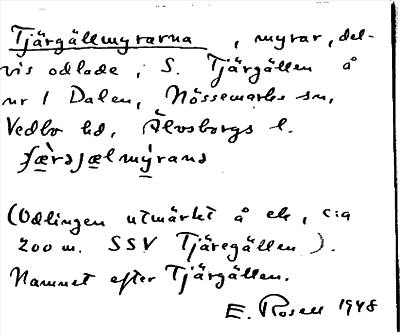 Tjärgällmyrarna, myrar, del-
vis odlade, S. Tjärgällen å
nr 1 Dalen, Nössemarks sn,
Vedbo hd, Älvsborgs l.
(Odlingen utmärkt å ek, c:a
200 m. SSV Tjäregällen).
Namnet efter Tjärgällen.
E. Rosell 1948